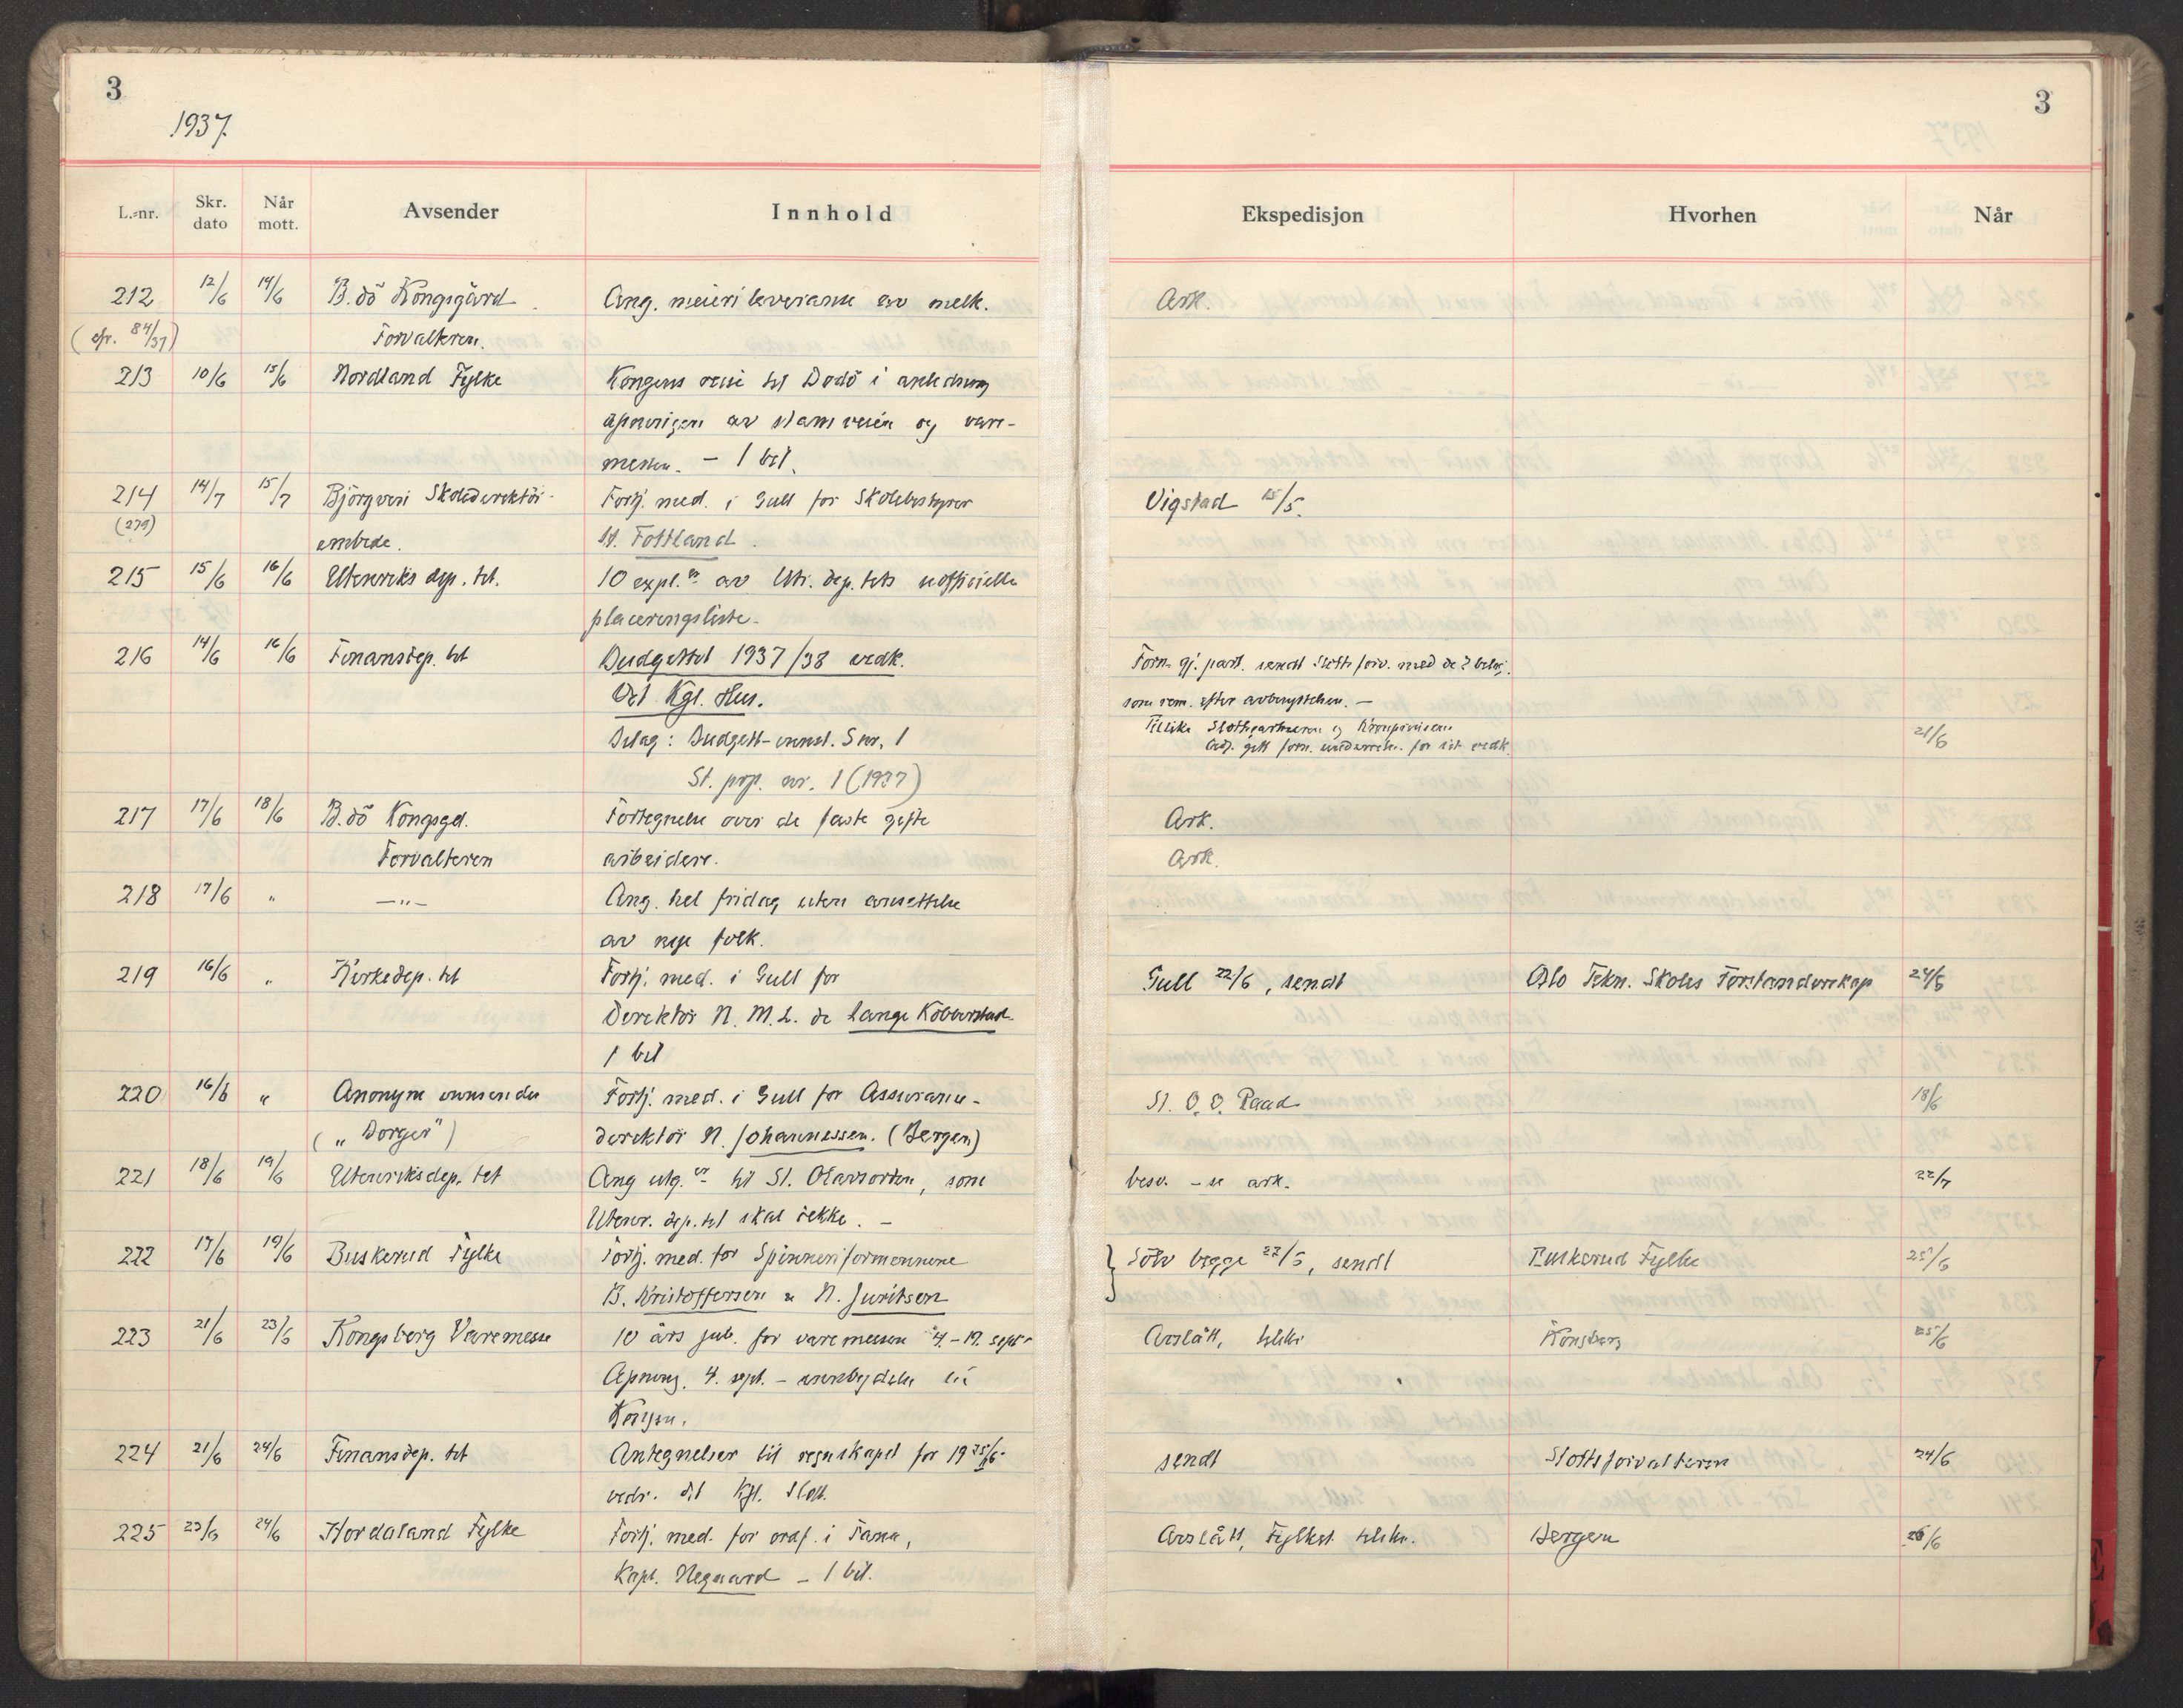 3
1937.
3
L.-nr. Skr. dato Når mott. Avsender Innhold Ekspedisjon Hvorhen Når
212 12/6 14/6 B.dö Kongsgård Ang. meieri leveranse av melk. Ark.
(cfr. 84/37) Forvalteren.
213 10/6 15/6 Nordland Fylke Kongens reise til Bodö i anledning
åpningen av stamveien og vare-
messen. - 1 bil.
214 14/7 15/7 Björgvin Skoledirektör- Fortj. med. i Gull for Skolebestyrer Vigstad 15/5.
(279) embede. St. Fottland.
215 15/6 16/6 Utenriks dep. tet. 10 expl.er av Utr. dep. tets uofficielle
placeringsliste.
216 14/6 16/6 Finansdep. tet Budgettet 1937/38 vedk. Form. gj. part. sendt Slottsforv. med de 2 bilag.
Det Kgl. Hus. som rem. efter avbenyttelsen. -
Bilag: Budgett-innst. S nr. 1 Tillike Slottsgartneren og Kronprinsens
Adj. gitt form. underretn. for sit vedk. 21/6
St. prp. nr. 1 (1937)
217 17/6 18/6 B.dö Kongsgd. Fortegnelse over de faste gifte Ark.
Forvalteren arbeidere. Ark.
218 17/6 " -"- Ang. hel fridag uten ansettelse
av nye folk.
219 16/6 " Kirkedep. tet Fortj. med. i Gull for Gull 22/6, sendt Oslo Tekn. Skoles Forstanderskap 24/6
Direktör N. M. L. de Lange Koberstad
1 bil
220 16/6 " Anonym innsender Fortj. med. i Gull for Assuranse- St. O. O. Paad 18/6
("Borger") direktör N. Johannessen. (Bergen)
221 18/6 19/6 Utenriksdep. tet Ang utg.er til St. Olavsorden, som besv. - se ark. 22/7
Utenr. dep. tet skal dekke. -
222 17/6 19/6 Buskerud Fylke Fortj. med. for Spinneriformennene Sölv begge 22/6, sendt Buskerud Fylke 25/6
B. Kristoffersen & N. Juritsen
223 21/6 23/6 Kongsberg Varemesse 10 års jub. for varemessen 4. - 19. sept. Avslått, telefon Kongsberg 25/6
Apning. 4. sept. - innbydelse til
Kongen.
224 21/6 24/6 Finansdep. tet Antegnelser til regnskapet for 1935/36 sendt Slottsforvalteren 24/6
vedr. det Kgl. Slott.
225 23/6 24/6 Hordaland Fylke Fortj. med. for ordf. i Fana, Avslått, Fylkest. Bergen 26/6
Kapt. Negaard - 1 bil.